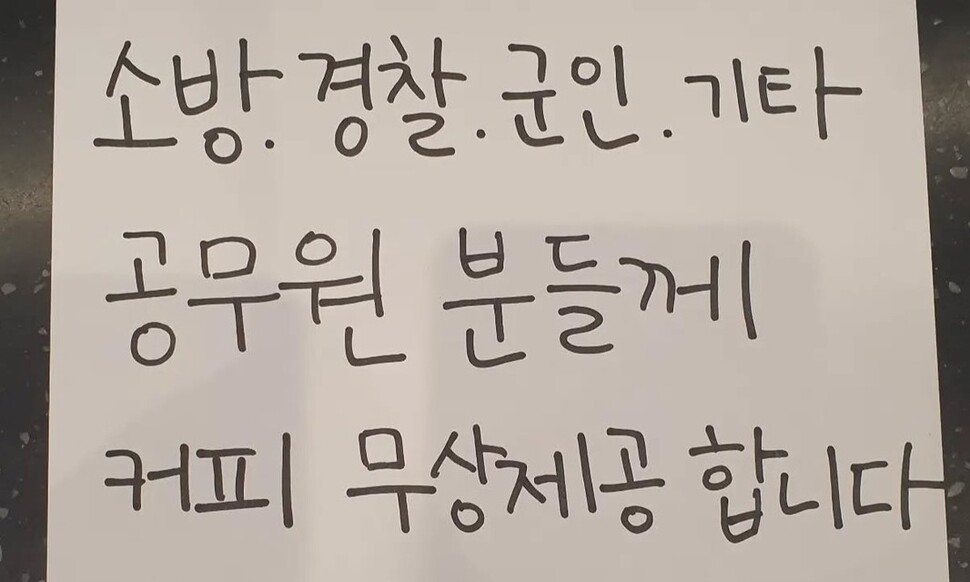 소방. 경찰. 군인. 기타
공무원 분들께
커피 무상제공 합니다